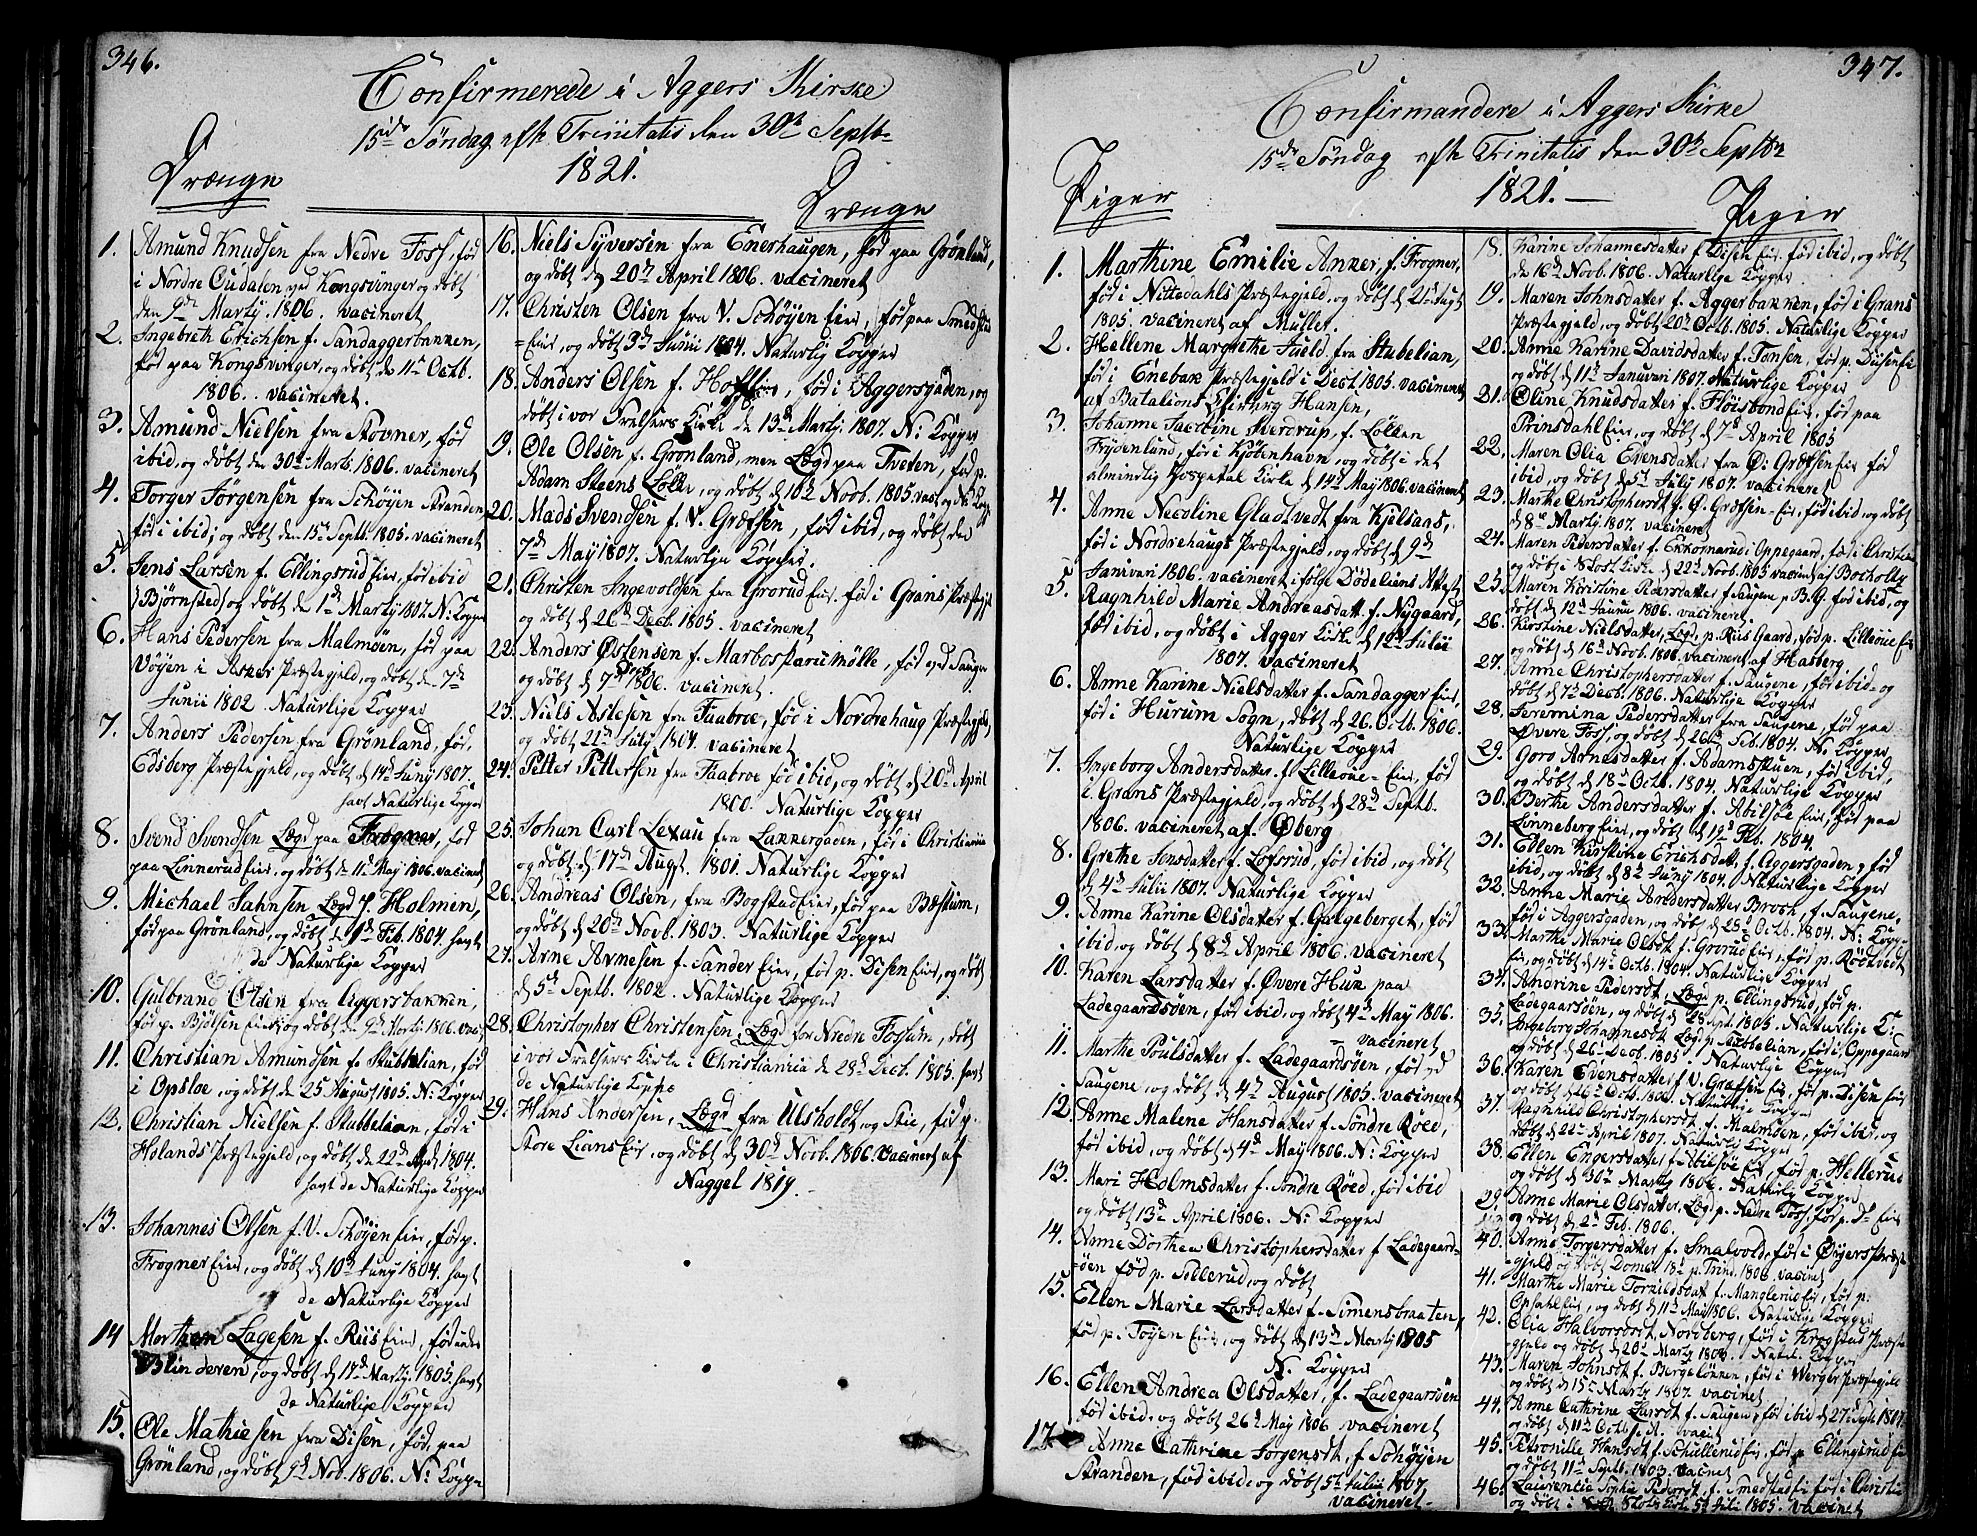 346.
Confirmerede i Aggers Kirke
15de Søndag efte Trinitatis den 30te Septb.
1821.
Drænge
Drænge
1. Amund Knudsen fra Nedre Foss, fød
i Nordre Oudalen ved Kongsvinger og døbt
den 9de Marty 1806. vacineret
2. Ingebreth Erichsen f. Sandaggerbakken,
fød paa Kongsvinger, og døbt de 11te Octb.
1806. vacineret.
3. Amund Nielsen fra Stovner, fød
ibid, og døbt den 30te Marts 1806. vacineret
4. Torger Jørgensen fra Schøyen Stranden
fød i ibid, og døbt den 15de Septb. 1805. vacineret
5. Jens Larsen f. Ellingsrud Eier, fød ibid
(Bjørnsted) og døbt den 1de Marty 1807. N: Kopper
6. Hans Pedersen fra Malmøen, fød paa
Vøyen i Asker Præstegjeld, og døbt de 7de
Junii 1802 Naturlige Kopper
7. Anders Pedersen fra Grønland, fød,
Edsberg Præstegjeld, og døbt de 14de Juny 1807.
havt Naturlige Kopper
8. Svend Svendsen Lægd paa Frogner, fød
paa Linnerud Eier, og døbt de 11te May 1806. vacineret
9. Michael Jahnsen Lægd p. Holmen,
fød paa Grønland, og døbt den 1de Feb. 1804. havt
de Naturlige Kopper
10. Gulbrand Olsen fra Aggersbakken,
fød p. Bjølsen Eier, og døbt den 9de Marti 1806. vac.
11. Christian Amundsen f. Stubbelian, fød
i Opsloe, og døbt de 25 August 1805. N: Kopper
12. Christian Nielsen f. Stubbelian, fød i
Hølands Præstegjeld, og døbt de 22de 1804.
havt de Naturlige Kopper
13. Johannes Olsen f. V. Schøyen Eier, fød p.
Frogner Eier, og døbt d 10de Juny 1804. havt
de Naturlige Kopper
14 Morthen Lagesen f. Riis Eier, fød under
Blinderen, og døbt d 14de Marty 1805. havt
de Naturlige Kopper
15. Ole Mathiesen fra Disen, fød, paa
Grønland, og døbt 9de Nov. 1806. N: Kopper
16. Niels Syversen fra Enerhaugen, fød paa Grønland,
og døbt d 20de April 1806. vacineret
17. Christen Olsen fra V. Schøyen Eier, fød paa Smedstad
Eier, og døbt 3de Junii 1804. Naturlig Kopper
18. Anders Olsen f. Hoff Eier, fød i Aggersgaden, og
døbt i vor Frelsers Kirke de 13de Marty 1807. N: Kopper
19. Ole Olsen f. Grønland, men Lægd paa Tveten, fød p.
Adam Steens Løkke, og døbt d 10de Novb. 1805. vact og N: Kop
20. Mads Svendsen f. V. Græfsen, fød ibid, og døbt den
7de May 1807. Naturlige Kopper.
21. Christen Ingevoldsen fra Grorud Eier. fød i Grans Præstegjeld
og døbt d 26de Decb. 1805. vacineret
22. Anders Østensen f. Marboskarumølle, fød ved Saugen
og døbt d 7de Decb 1806. vacineret.
23. Niels Aslesen fra Faabroe, fød i Nordrehaug Præstegjeld,
og døbt 21de July 1804. vacineret
24. Petter Pettersen fra Faabroe fød ibid, og døbt d 20de April
1800. Naturlige Kopper
25. Johan Carl Lexau fra Lakkergaden, fød i Christiania
og døbt d 17de Augt. 1801. Naturlige Kopper
26. Andreas Olsen, fra Bogstad Eier, fød paa Bæstum,
og døbt d 20de Novb. 1803. Naturlige Kopper
27. Arne Arnesen f. Sander Eier, fød p. Disen Eier, og døbt
d 5te Septb. 1802. Naturlige Kopper
28. Christopher Christensen Lægd for Nedre Fossum, døbt
i vor Frelsers Kirke i Christiania de 28de Dect. 1805. havt
de Naturlige Koppe
29. Hans Andersen, Lægd fra Ulsholdt og Stie, fød p.
Store Lians Eier, og døbt d 30de Novb. 1806. vacineret af
Naggel 1819.
347.
Confirmandere i Aggers Kirke
15de Søndag efte Trinitatis den 30te Septbr
1821.
Piger
Piger
1. Marthine Emilie Anker, f. Frogner,
fød i Nittedahls Præstegjeld, og døbt d 21de Augt
1805. vacineret af Muller.
2. Hellene Margrethe Juel fra Stubelian,
fød i Enebak Præstegjeld i Dect. 1805. vacineret
af Batalions Chirurg Hansen,
3. Johanne Jacobine Sverdrup, f. Løkken
Frydenlund, fød i Kjøbenhavn, og døbt i det
almindlig Hospetal Kirke d 14de May 1806. vacineret
4. Anne Necoline Gladtvedt fra Kjelsaas,
fød i Nordrehaugs Præstegjeld, og døbt d 9de
Januari 1806. vacineret ifølge Dødeliens Attest
5 Ragnhild Marie Andreasdatt f. Nygaard,
fød ibid, og døbt i Agger Kirke d 19de Julii
1807. vacineret
6. Anne Karine Nielsdatter f. Sandagger Eier,
fød i Hurum Sogn, døbt d 26. Octb. 1806.
Naturlige Kopper
7. Ingeborg Andersdatter f. Lilleøie-Eier, fød
i Grans Præstegjeld, og døbt d 28de Septb.
1806. vacineret af. Øberg
8. Grethe Jensdatter f. Lofsrud, fød ibid, og døbt
d 4de Julii 1807. Naturlige Kopper
9. Anne Karine Olsdatter f. Galgeberget, fød
ibid, og døbt d 8de April 1806. vacineret
10. Karen Larsdatter f. Øvere Huk paa
Ladegaardsøen, fød ibid, og døbt 4de May 1806.
vacineret
11. Marthe Poulsdatter f. Ladegaardsøen, fød ved
Saugene, og døbt d 4de August 1805. vacineret
12. Anne Malene Hansdatter f. Søndre Røed,
fød ibid, og døbt d 4de May 1806. N: Kopper
13. Mari Holmsdatter f. Søndre Røed, fød ibid
og døbt 13de April 1806. N: Kopper
14. Anne Dorthea Christophersdatter f Ladegaard-
øen fød p. Sollerud, og døbt
15. Ellen Marie Larsdatter f. Simensbraaten,
fød p. Tøyen Eier, og døbt d 13de Marty 1805
N. Kopper
16. Ellen Andrea Olsdatter, f. Ladegaarsøen
fød ibid, og døbt 26de May 1806 vacineret
17 Anne Cathrine Jørgensdt. f. Schøyen
Stranden, fød ibid, og døbt 5te Julii 1807.
vacineret
18. Karine Johannesdatter f Disen Eier. fød ibid, og døbt
de 16de Novb. 1806. Naturlige Kopper
19. Maren Johnsdatter f. Aggerbakken, fød i Grans
Præstegjeld, og døbt 20de Octb. 1805. Naturlige Kopper
20. Anne Karine Davidsdatter f. Tonsen, fød p. Disen Ei
og døbt d 11te Januari 1807. Naturlige Kopper
21. Oline Knudsdatter f. Fløisbond Eier, fød paa
Prinsdahl Eier, og døbt d 7de April 1805
22. Maren Olia Evensdatter fra Ø. Græfsen Eier fød
ibid, og døbt d 5te July 1807. vacineret
23. Marthe Christopherdt f. Ø. Græfsen-Eier, fød ibid, og døbt
d 8de Marty 1807. vacineret
24. Maren Pedersdatter f. Ekkornrud i Oppegaard, fød i Christian
og døbt i Slots Kirke d 22de Novb. 1805 vacin af Bocholtz
25. Maren Kirstine Pedersdatter f Saugen p B. G. fød ibid, og
døbt d 12te Januii 1806. vacineret.
26. Kirstine Nielsdatter, Lægd p. Riis Gaard, fød p. Lilleøie Eie
og døbt d 16de Novb. 1806 vacineret af Hasberg
27. Anne Christophersdatter f. Saugene, fød ibid og
døbt d 7de Decb. 1806. Naturlige Kopper
28. Jeremina Pedersdatter fra Saugene, fød paa
Øvere Foss, og døbt d 26de Feb. 1804. N: Kopper
29. Goro Arnesdatter f. Adamstuen, fød ibid,
og døbt d 18de Octb. 1804. Naturlige Kopper
30. Berthe Andersdatter f. Abilsøe Eier, fød paa
Linneberg Eier, og døbt d 19de Feb. 1804.
31. Ellen Kirstine Erichsdatt, f. Aggersgaden, fød
ibid, og døbt d 8de Juny 1804. Naturlige Kopper
32. Anne Marie Andersdatter Broch, f. Saugene,
fød i Aggersgaden, og døbt d 25de Octb. 1804. N: Kopp
33. Marthe Marie Olsdt f. Grorud Eier, fød p. Rødtvedt
Eier, og døbt d 14de Octb. 1804. Naturlige Kopper
34. Andrine Pedersdt, Lægd p. Ellingsrud, fød p.
Ladegaarsøen, og døbt d 28 Spt. 1805. Naturlige K:
35. Ingeborg Johannesdt Lægd p. Stubbelian, fød i Oppegaard
og døbt d 26de Decb. 1805 Naturlige Kopper
36. Karen Evensdatter f V. Grafsen Eie, fød p. Disen Eier
og døbt d 26de Octb. 1806. Naturlige Kopper
37. Ragnhild Christophersdt f. Malmøen, fød ibid, og
døbt d 22de April 1807. Naturlig Kopper
38. Ellen Engersdatter f. Abilsøe Eie, fød p. Hellerud
og døbt d 30te Marty 1806. Naturlig Kopper
39. Anne Marie Olsdatter, Lægd p. Nedre Foss, fød p. Do Eier
og døbt d 2de Feb. 1806.
40. Anne Torgersdatter f. Smalvold, fød i Øyers Præste
gjeld og døbt Domc. 18de p. Trind. 1806 vacinet
41. Marthe Marie Tornildsdat f. Manglerud Eie, fød p.
Opsahl Eie, og døbt d 11te May 1806. Naturlig Kopper
42. Olia Halvorsdt. Nordberg, fød i Krogstad Præste
gjeld og døbt d 20de Marty 1806. Natul. Kopper
43. Maren Johnsdt f. Bergeløkken, fød i Werger Præstegjeld
og døbt d 15de Marty 1807. vacinet
44. Anne Cathrine Larsdt f. Saugen, fød ibid d 27de Sept 1807
og døbt d 11te Octb. s. A. vacint
45. Petronille Hansdt f. Schullerud Eie, fød p Ellingsrud Eie
og døbt d 11te Septb. 1803. vacinet
46. Laurentia Sophie Pedersdt. f. Smedstad Ei fød i Christia
og døbt i Slots Kirke 5te Juli 1805. vacinet